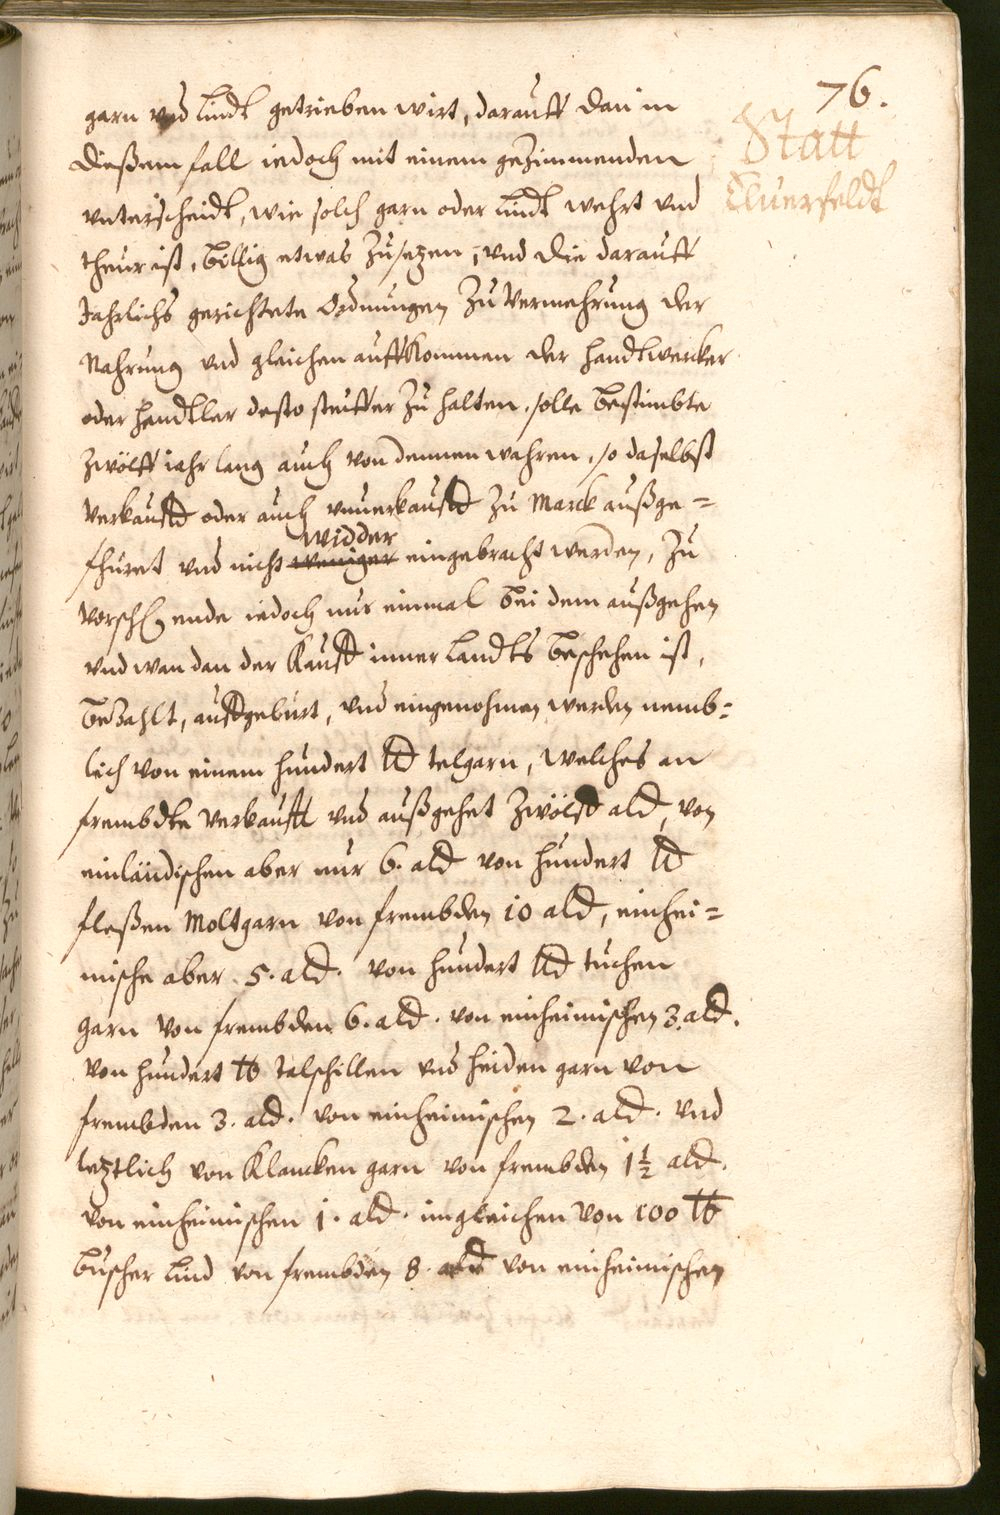 76.
Statt
Eluerfeldt
garn vnd lindt getrieben wirt, darauff dan in
dießem fall iedoch mit einem geZimmenden
vnterscheidt, wie solch garn oder lindt wehrt vnd
theur ist, billig etwas Zusetzen, vnd die darauff
Jahrlichs gerichtete Ordnungen Zu Vermehrung der
Nahrung vnd gleichen auffkommen der handtwercker
oder handtler desto steiffer Zu halten, solle bestimbte
Zwölff iahr lang auch von dennen wahren, so daselbst
verkaufft oder auch vnuerkaufft Zu Marck außge=
widder
fhüret vnd nicht weniger eingebracht werden, Zu
vorsch. ende iedoch nur einmal bei dem außgehen
vnd wan dan der Kauff inner Landts beschehen ist,
beZahlt, auffgebürt, vnd eingenohmen werden nemb=
lich von einem hundert lb telgarn, welches an
frembdte verkaufft vnd außgehet Zwölff ald, von
einländischen aber nur 6. ald von hundert lb
fleßen Moltgarn von frembden 10 ald, einhei=
mische aber 5. ald. von hundert lb tuchen
garn von frembden 6. ald. von einheimischen 3. ald.
von hundert lb talschillen vnd heiden garn von
frembden 3. ald. von einheimischen 2. ald. vnd
letztlich von Klancken garn von frembden 1½ ald.
von einheimischen 1. ald. imgleichen von 100 lb
büscher lind von frembden 8. ald von einheimischen